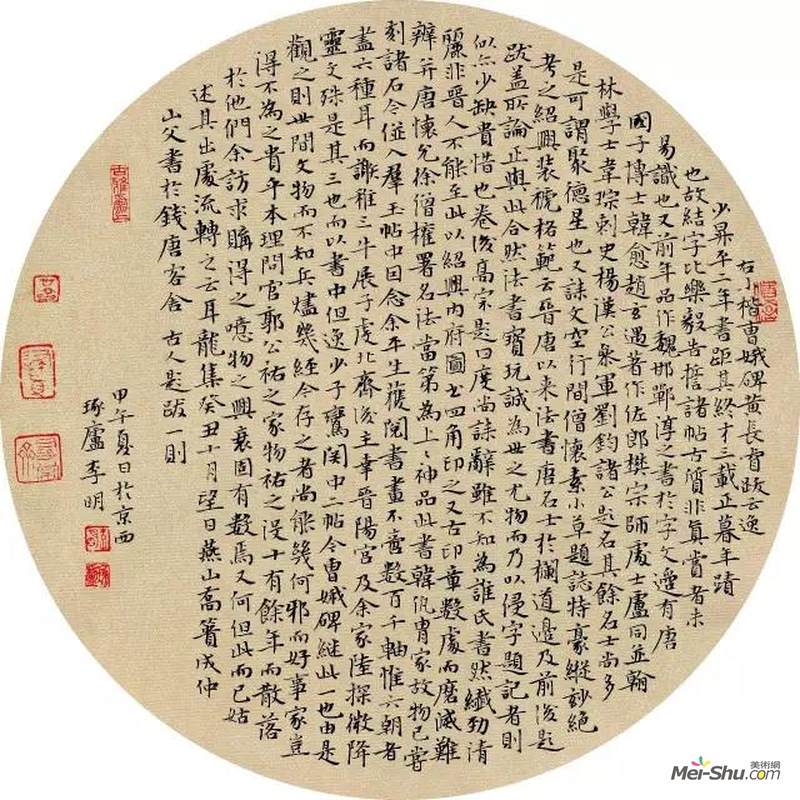 右小楷曹娥碑黃長睿跋云逸
少昇平二年書距其終才三載正暮年蹟
也故結字比樂毅告誓諸帖古質非真賞者未
易識也又前年品作魏邯鄲淳之書於字文邊有唐
國子博士韓愈趙玄遇著作佐郎樊宗師處士盧同並翰
林學士韋琮刺史楊漢公參軍劉鈞諸公題名其餘名士尚多
是可謂聚德星也又誄文空行間僧懷素小草題誌特豪縱妙絕
考之紹興裝褫柘範云晉唐以來法書唐名士於欄道邊及前後題
跋蓋所論正與此合然法書寶玩誠為世之尤物而乃以侵字題記者則
似亦少缺貴惜也卷後高宗題曰度尚誄辭雖不知為誰氏書然纖勁清
麗非晉人不能至此以紹興內府圖書四角印之又古印章數處而磨滅難
辨并唐懷充徐僧權署名法當第為上上神品此書韓侂胄家故物已嘗
刻諸石今併入羣玉帖中因念余平生獲閱書畫不啻數百千軸惟六朝者
蓋六種耳而謝稚三牛展子虔北齊後主幸晉陽宮及余家陸探微降
靈文殊是其三也而以書中但逸少子鸞關中二帖今曹娥碑繼此一也由是
觀之則世間文物而不知兵燼幾經今存之者尚能幾何邪而好事家豈
得不為之貴乎本理問官郭公祐之家物祐之沒十有餘年而散落
於他們余訪求購得之噫物之興衰固有數焉又何但此而已姑
述其出處流轉之云耳龍集癸丑十月望日燕山喬簣成仲
山父書於錢唐客舍 古人題跋一則
甲午夏日於京西
琢廬李明
美術網
Mei-Shu.com